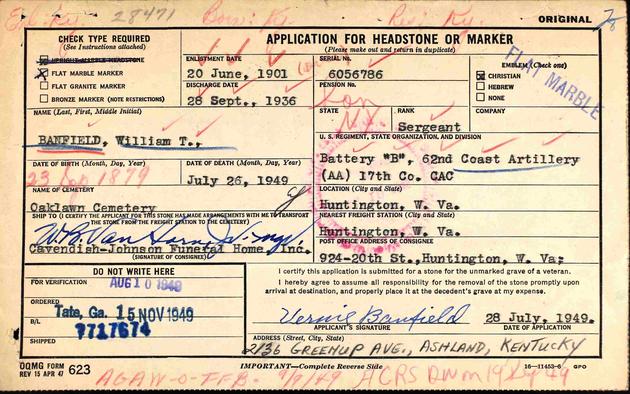 28471
ORIGINAL
CHECK TYPE REQUIRED
(See Instructions attached)
UPRIGHT MARBLE HEADSTONE
FLAT MARBLE MARKER
FLAT GRANITE MARKER
BRONZE MARKER (NOTE RESTRICTIONS)
APPLICATION FOR HEADSTONE OR MARKER
(Please make out and return in duplicate)
ENLISTMENT DATE
20 June, 1901
DISCHARGE DATE
28 Sept., 1936
SERIAL No.
6056786
PENSION No.
EMBLEM (Check one)
CHRISTIAN
HEBREW
NONE
FLAT MARBLE
NAME (Last, First, Middle Initial)
BANFIELD, William T.,
STATE
RANK
Sergeant
COMPANY
U. S. REGIMENT, STATE ORGANIZATION, AND DIVISION
Battery "B", 62nd Coast Artillery
(AA) 17th Co. CAC
DATE OF BIRTH (Month, Day, Year)
1879
DATE OF DEATH (Month, Day, Year)
July 26, 1949
NAME OF CEMETERY
Oaklawn Cemetery
LOCATION (City and State)
Huntington, W. Va.
SHIP TO (I CERTIFY THE APPLICANT FOR THIS STONE HAS MADE ARRANGEMENTS WITH ME TO TRANSPORT
THE STONE FROM THE FREIGHT STATION TO THE CEMETERY)
Cavendish-Johnson Funeral Home, Inc.
(SIGNATURE OF CONSIGNEE)
NEAREST FREIGHT STATION (City and State)
Huntington, W. Va.
POST OFFICE ADDRESS OF CONSIGNEE
924-20th St., Huntington, W. Va;
DO NOT WRITE HERE
FOR VERIFICATION
AUG 10 1949
ORDERED
Tate, Ga. 15 NOV 1949
B/L
7717674
SHIPPED
I certify this application is submitted for a stone for the unmarked grave of a veteran.
I hereby agree to assume all responsibility for the removal of the stone promptly upon
arrival at destination, and properly place it at the decedent's grave at my expense.
Vernie Banfield
28 July, 1949.
APPLICANT'S SIGNATURE
DATE OF APPLICATION
ADDRESS (Street, City, State)
2136 GREENUP AVE., ASHLAND, KENTUCKY
OQMG FORM
REV 15 APR 47
623
IMPORTANT—Complete Reverse Side
16—11453-6
GPO